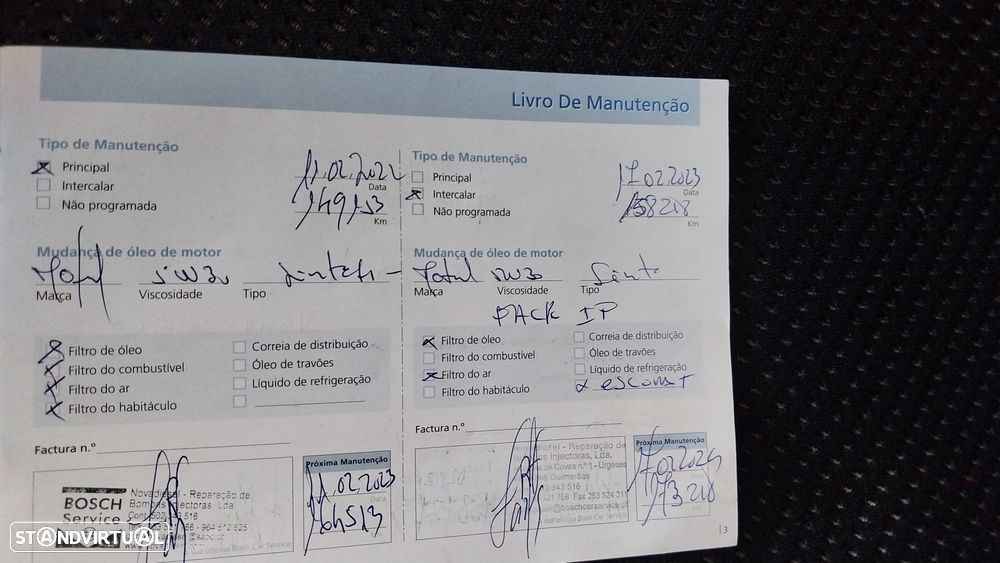 Livro De Manutenção
Tipo de Manutenção
Principal
Intercalar
Não programada
11.02.2022
Data
149153
Km
Mudança de óleo de motor
Total 5W30
Marca
Viscosidade
Tipo
Filtro de óleo
Filtro do combustível
Filtro do ar
Filtro do habitáculo
Correia de distribuição
Óleo de travões
Líquido de refrigeração
Factura n.º
BOSCH
Service
Novadiesel - Reparação de
Bombas Injectoras, Lda
Próxima Manutenção
11.02.2023
164513
Tipo de Manutenção
Principal
Intercalar
Não programada
17.02.2023
Data
158218
Km
Mudança de óleo de motor
Total 5W30
Marca
Viscosidade
Tipo
PACK IP
Filtro de óleo
Filtro do combustível
Filtro do ar
Filtro do habitáculo
Correia de distribuição
Óleo de travões
Líquido de refrigeração
Factura n.º
Reparação de
Injectoras, Lda.
Covas n.º 1 - Urgeses
Guimarães
Próxima Manutenção
17.02.2024
173218
13
STANDVIRTUAL